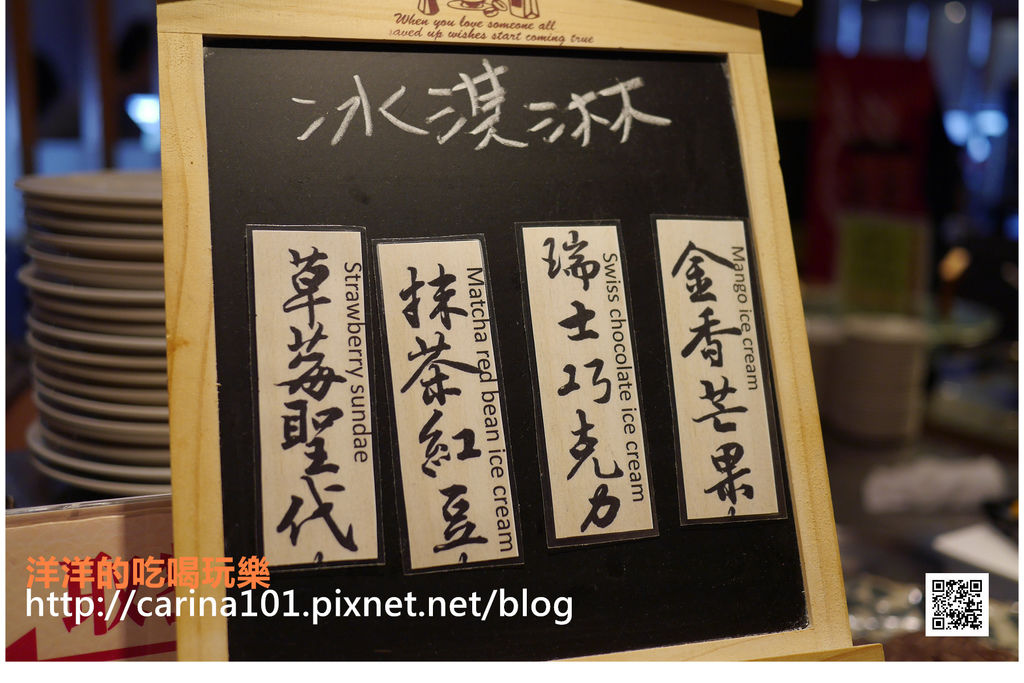 When you love someone all
saved up wishes start coming true
冰淇淋
金香芒果
Mango ice cream
瑞士巧克力
Swiss chocolate ice cream
抹茶紅豆
Matcha red bean ice cream
草莓聖代
Strawberry sundae
洋洋的吃喝玩樂
http://carina101.pixnet.net/blog